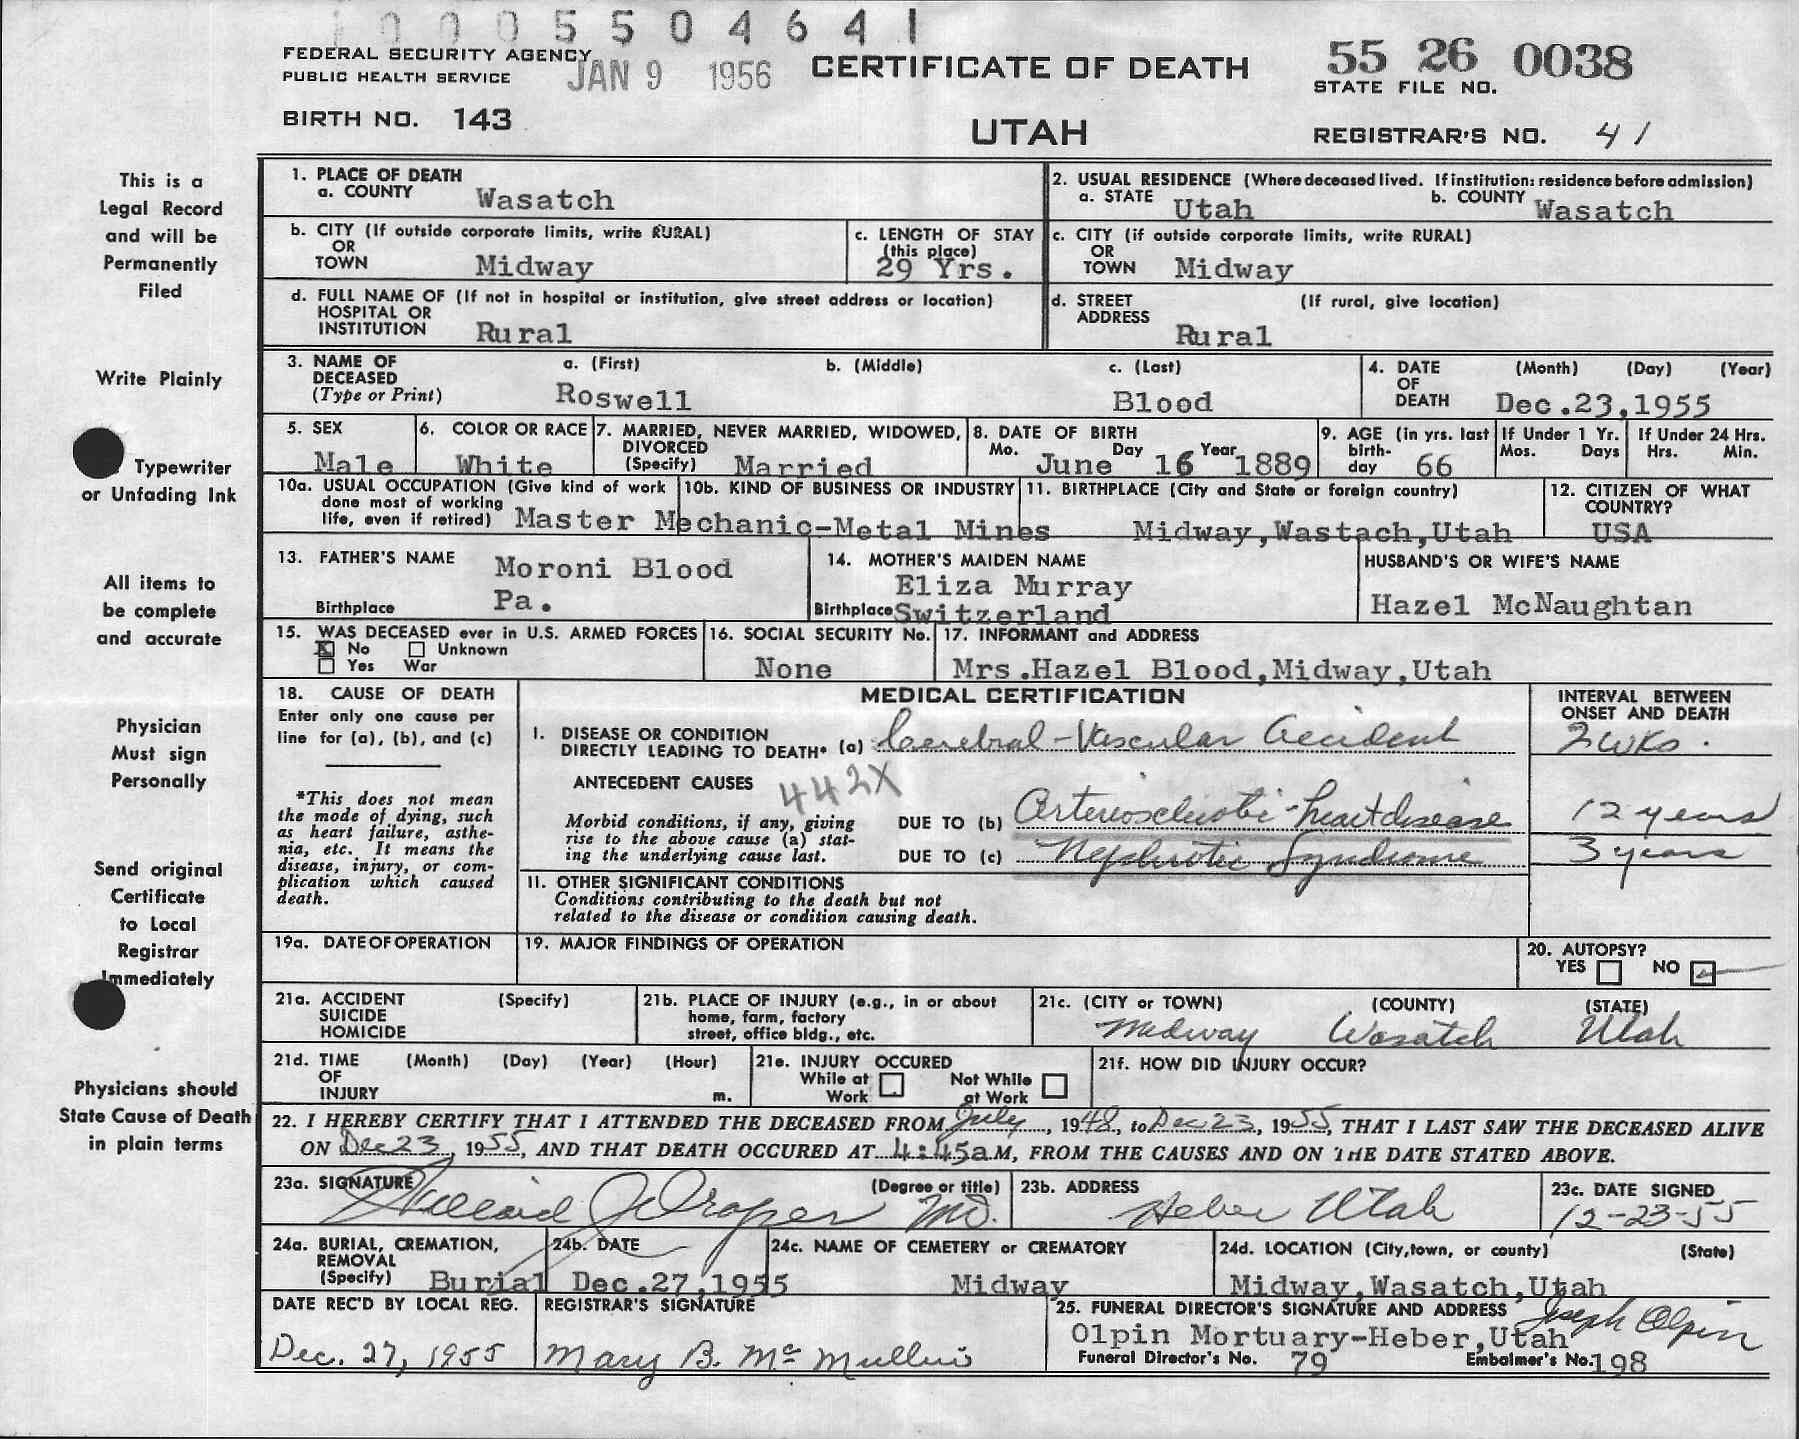 0005504641
FEDERAL SECURITY AGENCY
PUBLIC HEALTH SERVICE
JAN 9 1956
CERTIFICATE OF DEATH
55 26 0038
STATE FILE NO.
BIRTH NO. 143
UTAH
REGISTRAR'S NO. 41
This is a
Legal Record
and will be
Permanently
Filed
Write Plainly
Typewriter
or Unfading Ink
All items to
be complete
and accurate
Physician
Must sign
Personally
Send original
Certificate
to Local
Registrar
Immediately
Physicians should
State Cause of Death
in plain terms
1. PLACE OF DEATH
a. COUNTY Wasatch
2. USUAL RESIDENCE (Where deceased lived. If institution: residence before admission)
a. STATE Utah b. COUNTY Wasatch
b. CITY (If outside corporate limits, write RURAL)
OR
TOWN Midway
c. LENGTH OF STAY
(this place)
29 Yrs.
c. CITY (if outside corporate limits, write RURAL)
OR
TOWN Midway
d. FULL NAME OF (If not in hospital or institution, give street address or location)
HOSPITAL OR
INSTITUTION Rural
d. STREET (If rural, give location)
ADDRESS
Rural
3. NAME OF a. (First) b. (Middle) c. (Last)
DECEASED
(Type or Print) Roswell Blood
4. DATE (Month) (Day) (Year)
OF
DEATH Dec.23,1955
5. SEX
Male
6. COLOR OR RACE
White
7. MARRIED, NEVER MARRIED, WIDOWED,
DIVORCED
(Specify) Married
8. DATE OF BIRTH
Mo. June Day 16 Year 1889
9. AGE (in yrs. last
birth-
day 66
If Under 1 Yr.
Mos. Days
If Under 24 Hrs.
Hrs. Min.
10a. USUAL OCCUPATION (Give kind of work
done most of working
life, even if retired) Master Mechanic-Metal Mines
10b. KIND OF BUSINESS OR INDUSTRY
11. BIRTHPLACE (City and State or foreign country)
Midway,Wastach,Utah
12. CITIZEN OF WHAT
COUNTRY?
USA
13. FATHER'S NAME Moroni Blood
Birthplace Pa.
14. MOTHER'S MAIDEN NAME
Eliza Murray
Birthplace Switzerland
HUSBAND'S OR WIFE'S NAME
Hazel McNaughtan
15. WAS DECEASED ever in U.S. ARMED FORCES
X No Unknown
Yes War
16. SOCIAL SECURITY No.
None
17. INFORMANT and ADDRESS
Mrs.Hazel Blood,Midway,Utah
18. CAUSE OF DEATH
Enter only one cause per
line for (a), (b), and (c)
*This does not mean
the mode of dying, such
as heart failure, asthe-
nia, etc. It means the
disease, injury, or com-
plication which caused
death.
MEDICAL CERTIFICATION
INTERVAL BETWEEN
ONSET AND DEATH
I. DISEASE OR CONDITION
DIRECTLY LEADING TO DEATH* (a) Cerebral-Vascular Accident 2 wks.
ANTECEDENT CAUSES 442X
Morbid conditions, if any, giving
rise to the above cause (a) stat-
ing the underlying cause last.
DUE TO (b) Arteriosclerotic-heart disease 12 years
DUE TO (c) Nephrotic Syndrome 3 years
II. OTHER SIGNIFICANT CONDITIONS
Conditions contributing to the death but not
related to the disease or condition causing death.
19a. DATE OF OPERATION
19. MAJOR FINDINGS OF OPERATION
20. AUTOPSY?
YES NO
21a. ACCIDENT (Specify)
SUICIDE
HOMICIDE
21b. PLACE OF INJURY (e.g., in or about
home, farm, factory
street, office bldg., etc.
21c. (CITY or TOWN) (COUNTY) (STATE)
Midway Wasatch Utah
21d. TIME (Month) (Day) (Year) (Hour)
OF
INJURY m.
21e. INJURY OCCURED
While at Not While
Work at Work
21f. HOW DID INJURY OCCUR?
22. I HEREBY CERTIFY THAT I ATTENDED THE DECEASED FROM July, 1948, to Dec 23, 1955, THAT I LAST SAW THE DECEASED ALIVE
ON Dec 23, 1955, AND THAT DEATH OCCURED AT 4:45aM, FROM THE CAUSES AND ON THE DATE STATED ABOVE.
23a. SIGNATURE (Degree or title)
Draper MD.
23b. ADDRESS
Heber Utah
23c. DATE SIGNED
12-23-55
24a. BURIAL, CREMATION,
REMOVAL
(Specify) Burial
24b. DATE
Dec.27,1955
24c. NAME OF CEMETERY or CREMATORY
Midway
24d. LOCATION (City, town, or county) (State)
Midway,Wasatch,Utah
DATE REC'D BY LOCAL REG.
Dec. 27, 1955
REGISTRAR'S SIGNATURE
Mary B. McMullin
25. FUNERAL DIRECTOR'S SIGNATURE AND ADDRESS Joseph Olpin
Olpin Mortuary-Heber,Utah
Funeral Director's No. 79 Embalmer's No. 198